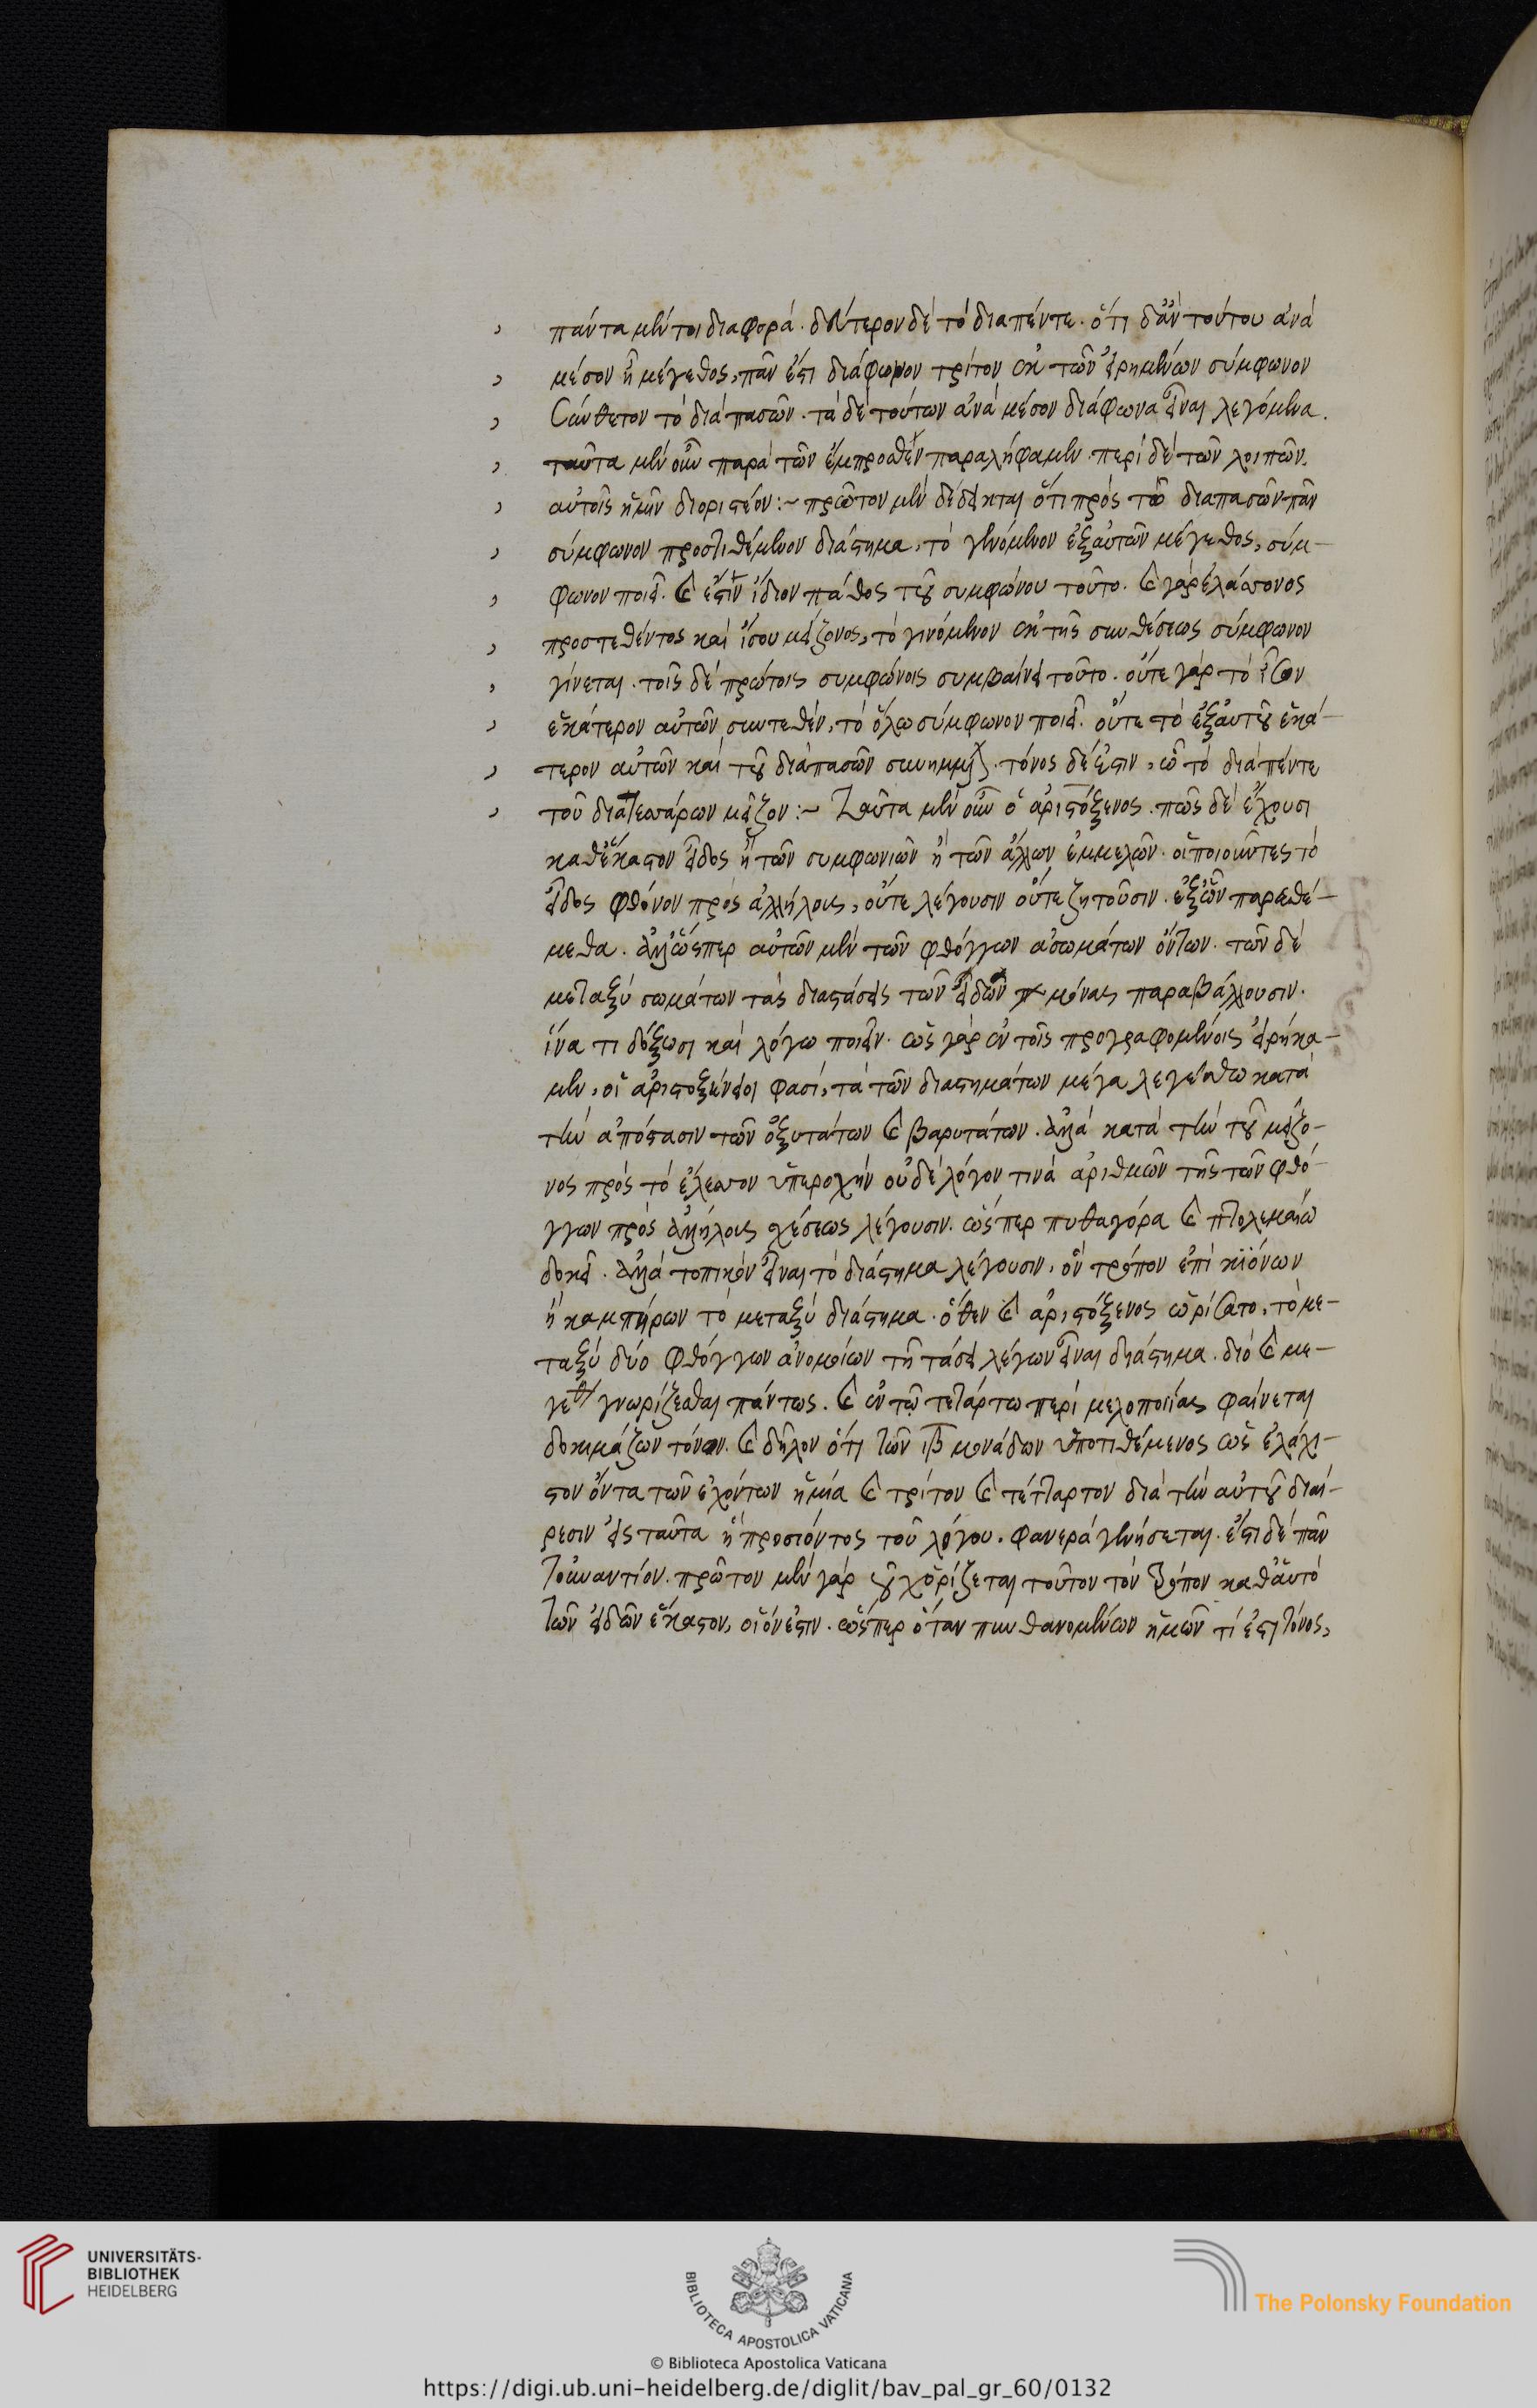 πάντα μέντοι διαφορά. δεύτερον δὲ τὸ διαπέντε. ὅτι δἂν τούτου ἀνὰ
μέσον ᾖ μέγεθος, πᾶν ἐστι διάφωνον τρίτον ἐκ τῶν εἰρημένων σύμφωνον
σύνθετον τὸ διὰ πασῶν. τὰ δὲ τούτων ἀνὰ μέσον διάφωνα εἶναι λεγόμενα.
ταῦτα μὲν οὖν παρὰ τῶν ἔμπροσθεν παραλήφαμεν. περὶ δὲ τῶν λοιπῶν.
αὐτοῖς ἡμῖν διοριστέον :~ πρῶτον μὲν δέδεικται ὅτι πρὸς τῷ διαπασῶν πᾶν
σύμφωνον προστιθέμενον διάστημα, τὸ γενόμενον ἐξ αὐτῶν μέγεθος, σύμ-
φωνον ποιεῖ. καὶ ἔστιν ἴδιον πάθος τοῦ συμφώνου τοῦτο. καὶ γὰρ ἐλάσσονος
προστεθέντος καὶ ἴσου μείζονος, τὸ γινόμενον ἐκ τῆς συνθέσεως σύμφωνον
γίνεται. τοῖς δὲ πρώτοις συμφώνοις συμβαίνει τοῦτο. οὔτε γὰρ τὸ ἴσον
ἑκάτερον αὐτῶν συντεθὲν, τὸ ὅλω σύμφωνον ποιεῖ. οὔτε τὸ ἐξ αὐτοῦ ἑκά-
τερον αὐτῶν καὶ τοῦ διὰπασῶν. τόνος δέ ἐστιν, ὧ τὸ διὰ πέντε
τοῦ διατεσσάρων μεῖζον :~ Ταῦτα μὲν οὖν ὁ ἀριστόξενος. πῶς δὲ ἔχουσι
καθέκαστον εἶδος ἢ τῶν συμφωνιῶν ἢ τῶν ἄλλων ἐμμελῶν. οἱ ποιοῦντες τὸ
εἶδος φθόνον πρὸς ἀλλήλους, οὔτε λέγουσιν οὔτε ζητοῦσιν. ἐξ ὧν παρεθέ-
μεθα. ἀλλ' ὥσπερ αὐτῶν μὲν τῶν φθόγγων ἀσωμάτων ὄντων. τῶν δὲ
μεταξὺ σωμάτων τὰς διαστάσεις τῶν εἰδῶν μόνας παραβάλλουσιν.
ἵνα τι δόξωσι καὶ λόγω ποιεῖν. ὡς γὰρ ἐν τοῖς προγραφομένοις εἰρήκα-
μεν, οἱ ἀριστοξένειοι φασὶ, τὰ τῶν διαστημάτων μέγα λεγέσθω κατὰ
τὴν ἀπόστασιν τῶν ὀξυτάτων καὶ βαρυτάτων. ἀλλὰ κατὰ τὴν τοῦ μείζο-
νος πρὸς τὸ ἔλεσσον ὑπεροχὴν οὐδὲ λόγον τινὰ ἀριθμῶν τῆς τῶν φθό-
γγων πρὸς ἀλλήλους σχέσεως λέγουσιν. ὥσπερ πυθαγόρα καὶ πτολεμαίω
δοκεῖ. ἀλλὰ τοπικὸν εἶναι τὸ διάστημα λέγουσιν, ὃν τρόπον ἐπὶ κϊόνων
ἢ καμπτήρων τὸ μεταξὺ διάστημα. ὅθεν καὶ ἀριστόξενος ὡρίσατο, τὸ με-
ταξὺ δύο φθόγγων ἀνομοίων τῇ τάσει λέγων εἶναι διάστημα. διὸ καὶ με-
γέθει γνωρίζεσθαι πάντως. καὶ ἐν τῷ τετάρτω περὶ μελοποιίας φαίνεται
δοκιμάζων τόνον. καὶ δῆλον ὅτι τῶν ιβ μονάδων ὑποτιθέμενος ὡς ἐλάχι-
στον ὄντα τῶν ἐχόντων ἡμία καὶ τρίτον καὶ τέταρτον διὰ τὴν αὐτοῦ διαί-
ρεσιν εἰς ταῦτα ἢ προσιόντος τοῦ λόγου. φανερὰ γενήσεται. ἔστι δὲ πᾶν
τοὐναντίον. πρῶτον μὲν γὰρ οὐ χορίζεται τοῦτον τὸν τρόπον καθ' αὑτὸ
τῶν εἰδῶν ἕκαστον, οἷόν ἐστιν. ὥσπερ ὅταν πυνθανομένων ἡμῶν τί ἐστι τόνος,
UNIVERSITÄTS-
BIBLIOTHEK
HEIDELBERG
BIBLIOTECA APOSTOLICA VATICANA
The Polonsky Foundation
© Biblioteca Apostolica Vaticana
https://digi.ub.uni-heidelberg.de/diglit/bav_pal_gr_60/0132